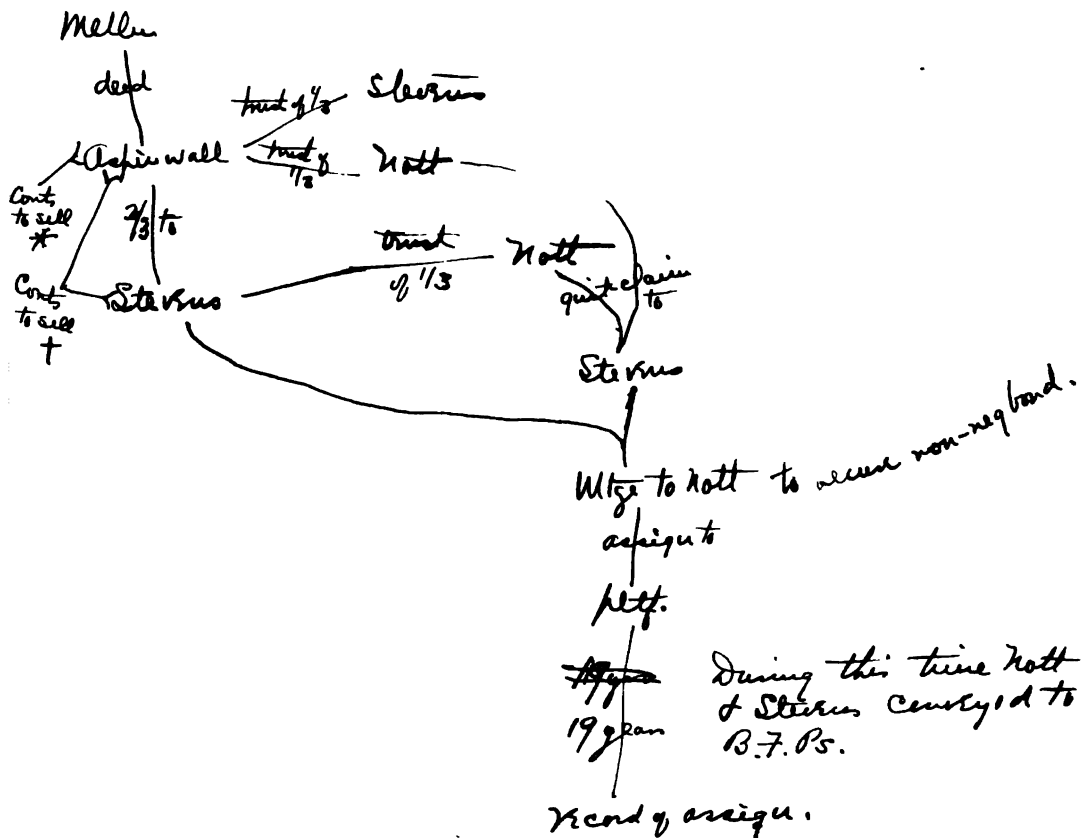 Mellen
deed
trust of 1/3
Stevens
Aspinwall
trust of
1/3
Nott
Conts
to sell
*
2/3 to
trust
of 1/3
Nott
quit claim
to
Conts
to sell
†
Stevens
Stevens
Mtge to Nott to secure non-neg bond.
assign to
pltf.
19 years
19 years
During this time Nott
& Stevens conveyed to
B.F.Ps.
record of assign.